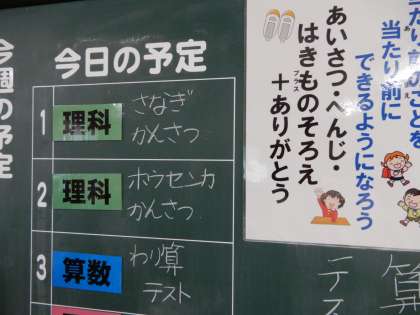 今週の予定
今日の予定
1
理科
さなぎ
かんさつ
2
理科
ホウセンカ
かんさつ
3
算数
わり算
テスト
当たり前に
できるようになろう
あいさつ・へんじ・
はきものそろえ
プラス
+ありがとう
算
テス